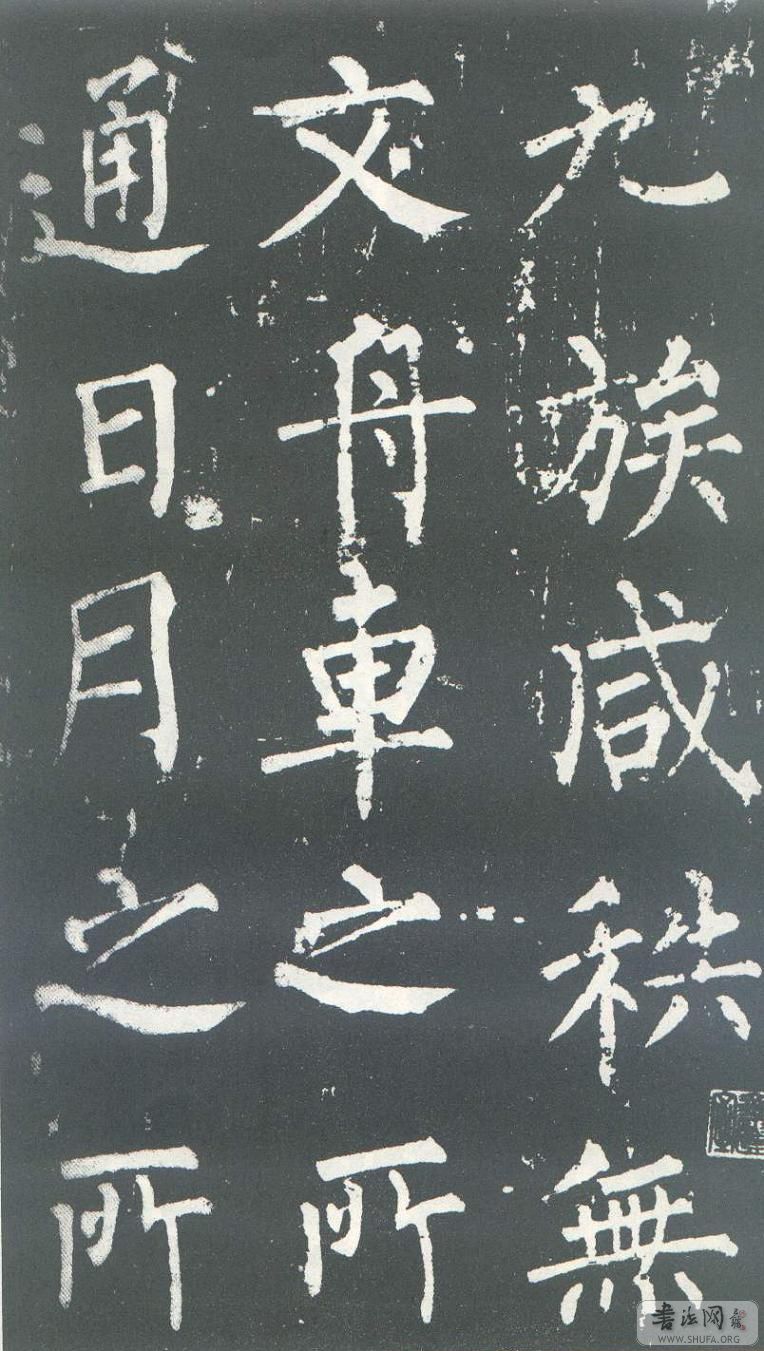 九族咸秩無
文舟車之所
通日月之所
書法网
WWW.SHUFA.ORG